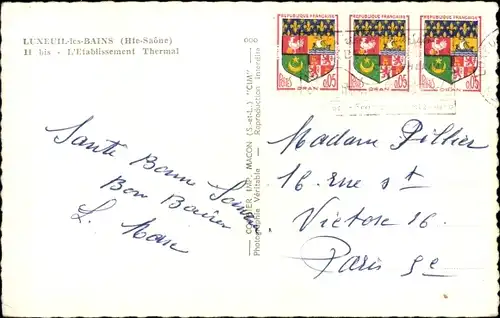 LUXEUIL-les-BAINS (Hte-Saône)
11 bis - L'Etablissement Thermal
000
COMBIER IMP. MACON (S.-et-L.) "CIM"
Photographie Véritable - Reproduction interdite
REPUBLIQUE FRANÇAISE
REPUBLIQUE FRANÇAISE
REPUBLIQUE FRANÇAISE
POSTES 0,05
ORAN
POSTES 0,05
ORAN
POSTES 0,05
ORAN
Santé Bonne
Bon Baiser
L.
Madame Pillier
16 Rue St
Victor 16
Paris 5e